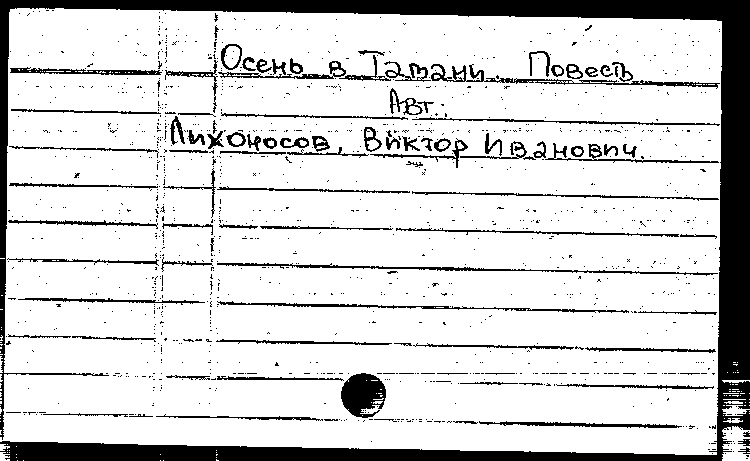 Осень в Тамани. Повесть
Авт.:
Лихоносов, Виктор Иванович.